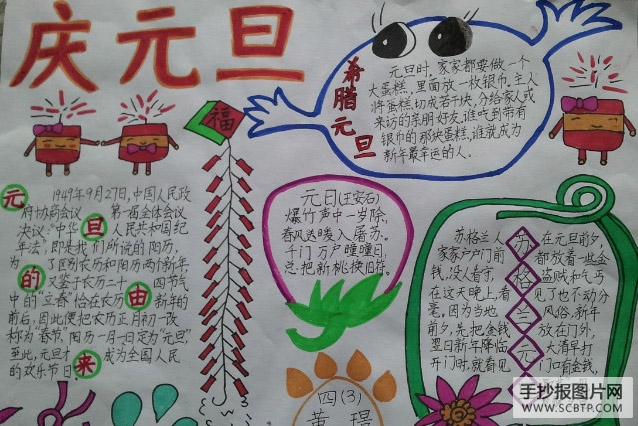 庆元旦
福
元旦的由来
1949年9月27日,中国人民政
府协商会议 第一届全体会议
决议:"中华 人民共和国纪
年法",即是我们所说的阳历,
为了区别农历和阳历两个新年
又鉴于农历二十 四节气
中的"立春"恰在农历 新年的
前后,因此便把农历正月初一改
称为"春节",阳历一月一日定为"元旦",
至此,元旦才 成为全国人民
的欢乐节日。
希腊元旦
元旦时,家家都要做一个
大蛋糕,里面放一枚银币,主人
将蛋糕切成若干块,分给家人或
来访的亲朋好友,谁吃到带有
银巾的那块蛋糕,谁就成为
新年最幸运的人。
元日(王安石)
爆竹声中一岁除,
春风送暖入屠苏。
千门万户曈曈日,
总把新桃换旧符。
苏格兰元
苏格兰人 在元旦前夕,
家家户户门前 都放着一些金
钱,没人看守, 盗贼和乞丐
在这天晚上,看 见了也不动分
毫。因为当地 风俗,新年
前夕,先把金钱 放在门外,
翌日新年降临 大清早打
开门时,就看见 门口有金钱,
四(3)
黄
手抄报图片网
WWW.SCBTP.COM